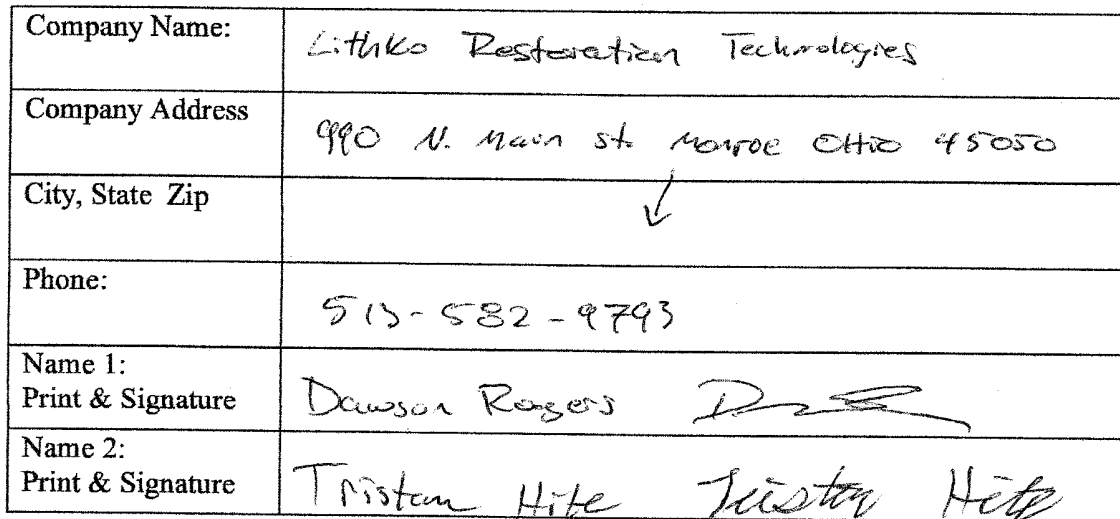 Company Name: Lithko Restoration Technologies
Company Address 990 N. Main St. Monroe OHio 45050
City, State Zip
Phone: 513-582-9793
Name 1:
Print & Signature Dawson Rogers
Name 2:
Print & Signature Tristan Hite Tristan Hite